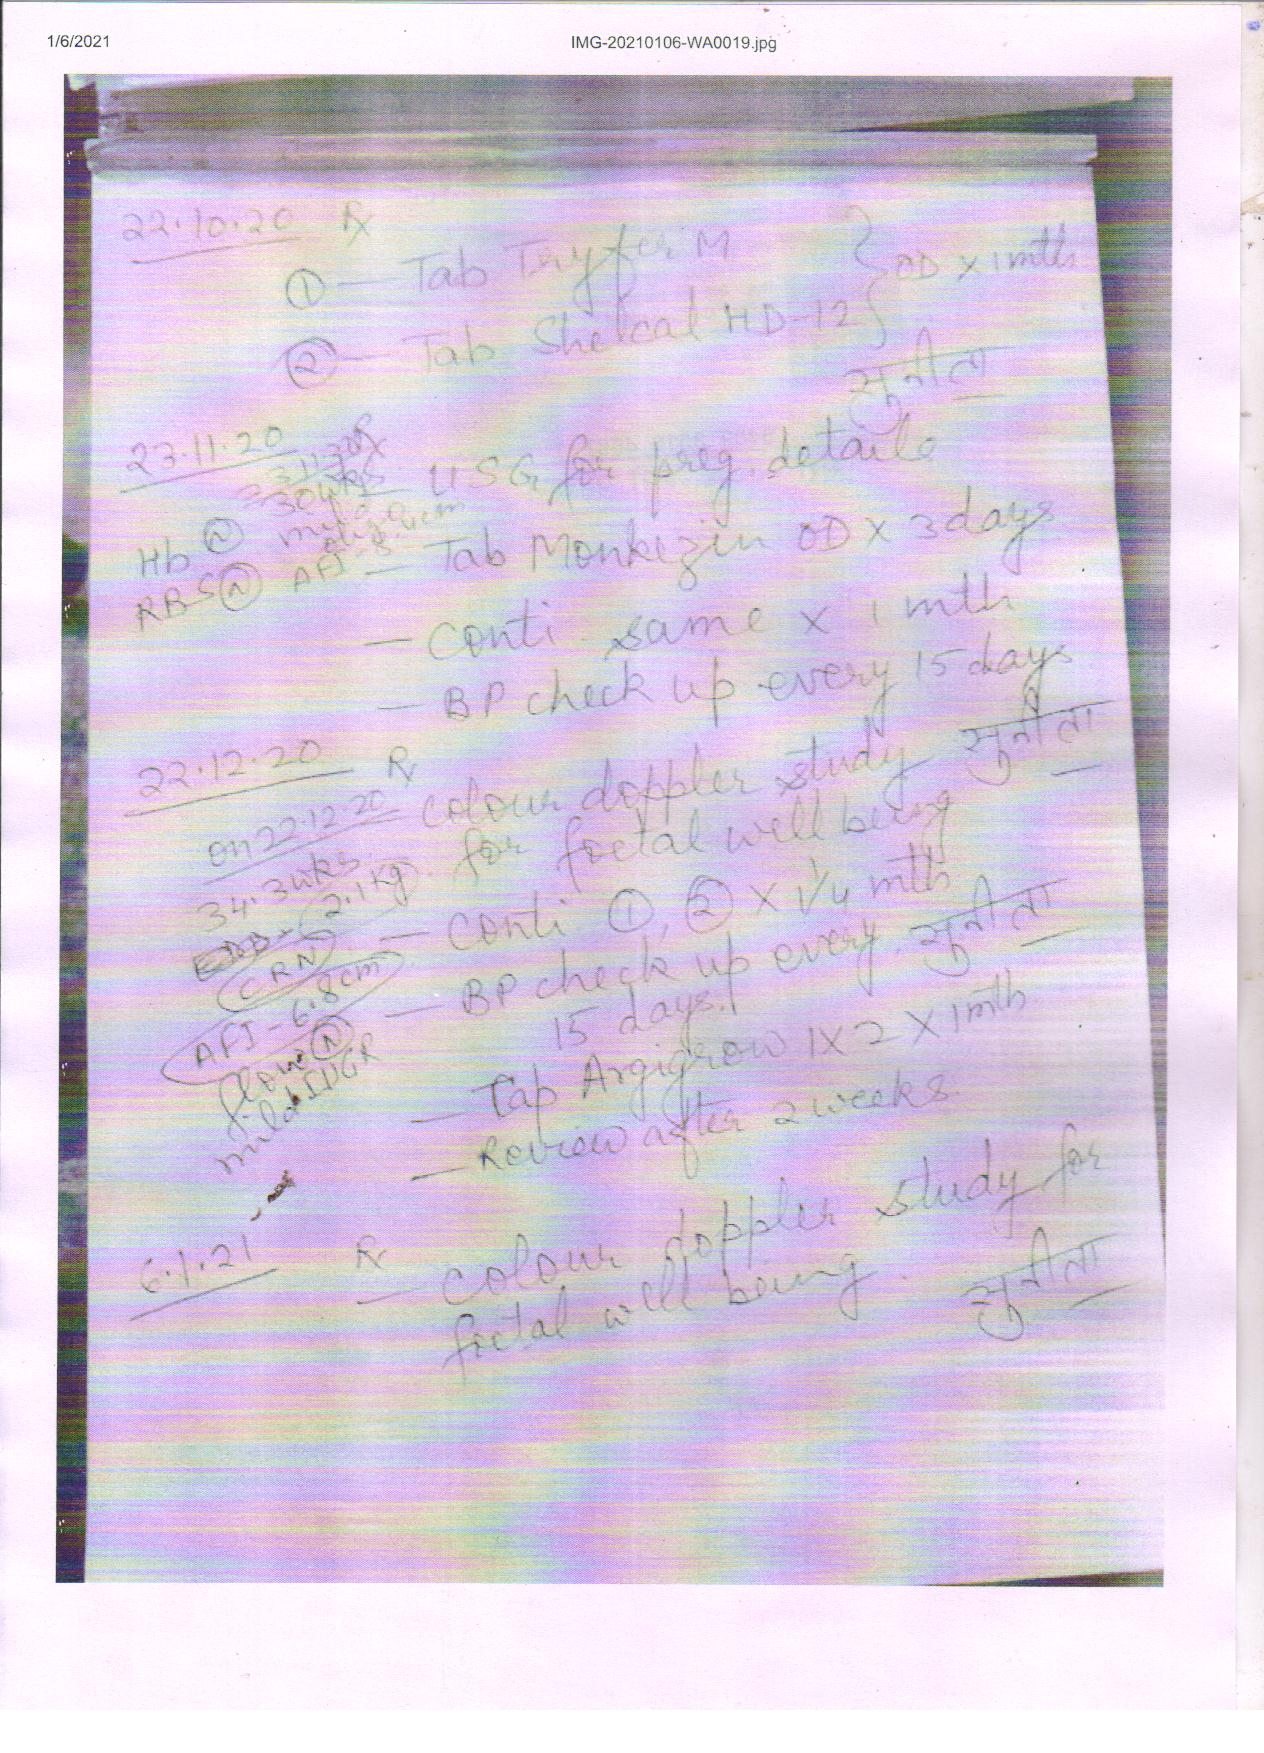 1/6/2021 IMG-20210106-WA0019.jpg
22.10.20 Rx
① — Tab Tryfer M
② — Tab Shelcal HD-12 } OD x 1 mth
सुनीता
23.11.20 Rx
— USG for preg. details
30 wks
mild
Hb Ⓝ
RBS Ⓝ AFI-
— Tab Monkezin OD x 3 days
— Conti same x 1 mth
— BP check up every 15 days
सुनीता
22.12.20 Rx
— Colour doppler study
for foetal well being
on 22.12.20
34.3 wks
2.1 kg
AFI - 6.8 cm
flow Ⓝ
mild IUGR
— Conti ①, ② x 1/4 mth
— BP check up every
15 days.
सुनीता
— Tap Argigrow 1x2 x 1 mth
— Review after 2 weeks.
6.1.21 Rx
— Colour doppler study for
foetal well being.
सुनीता